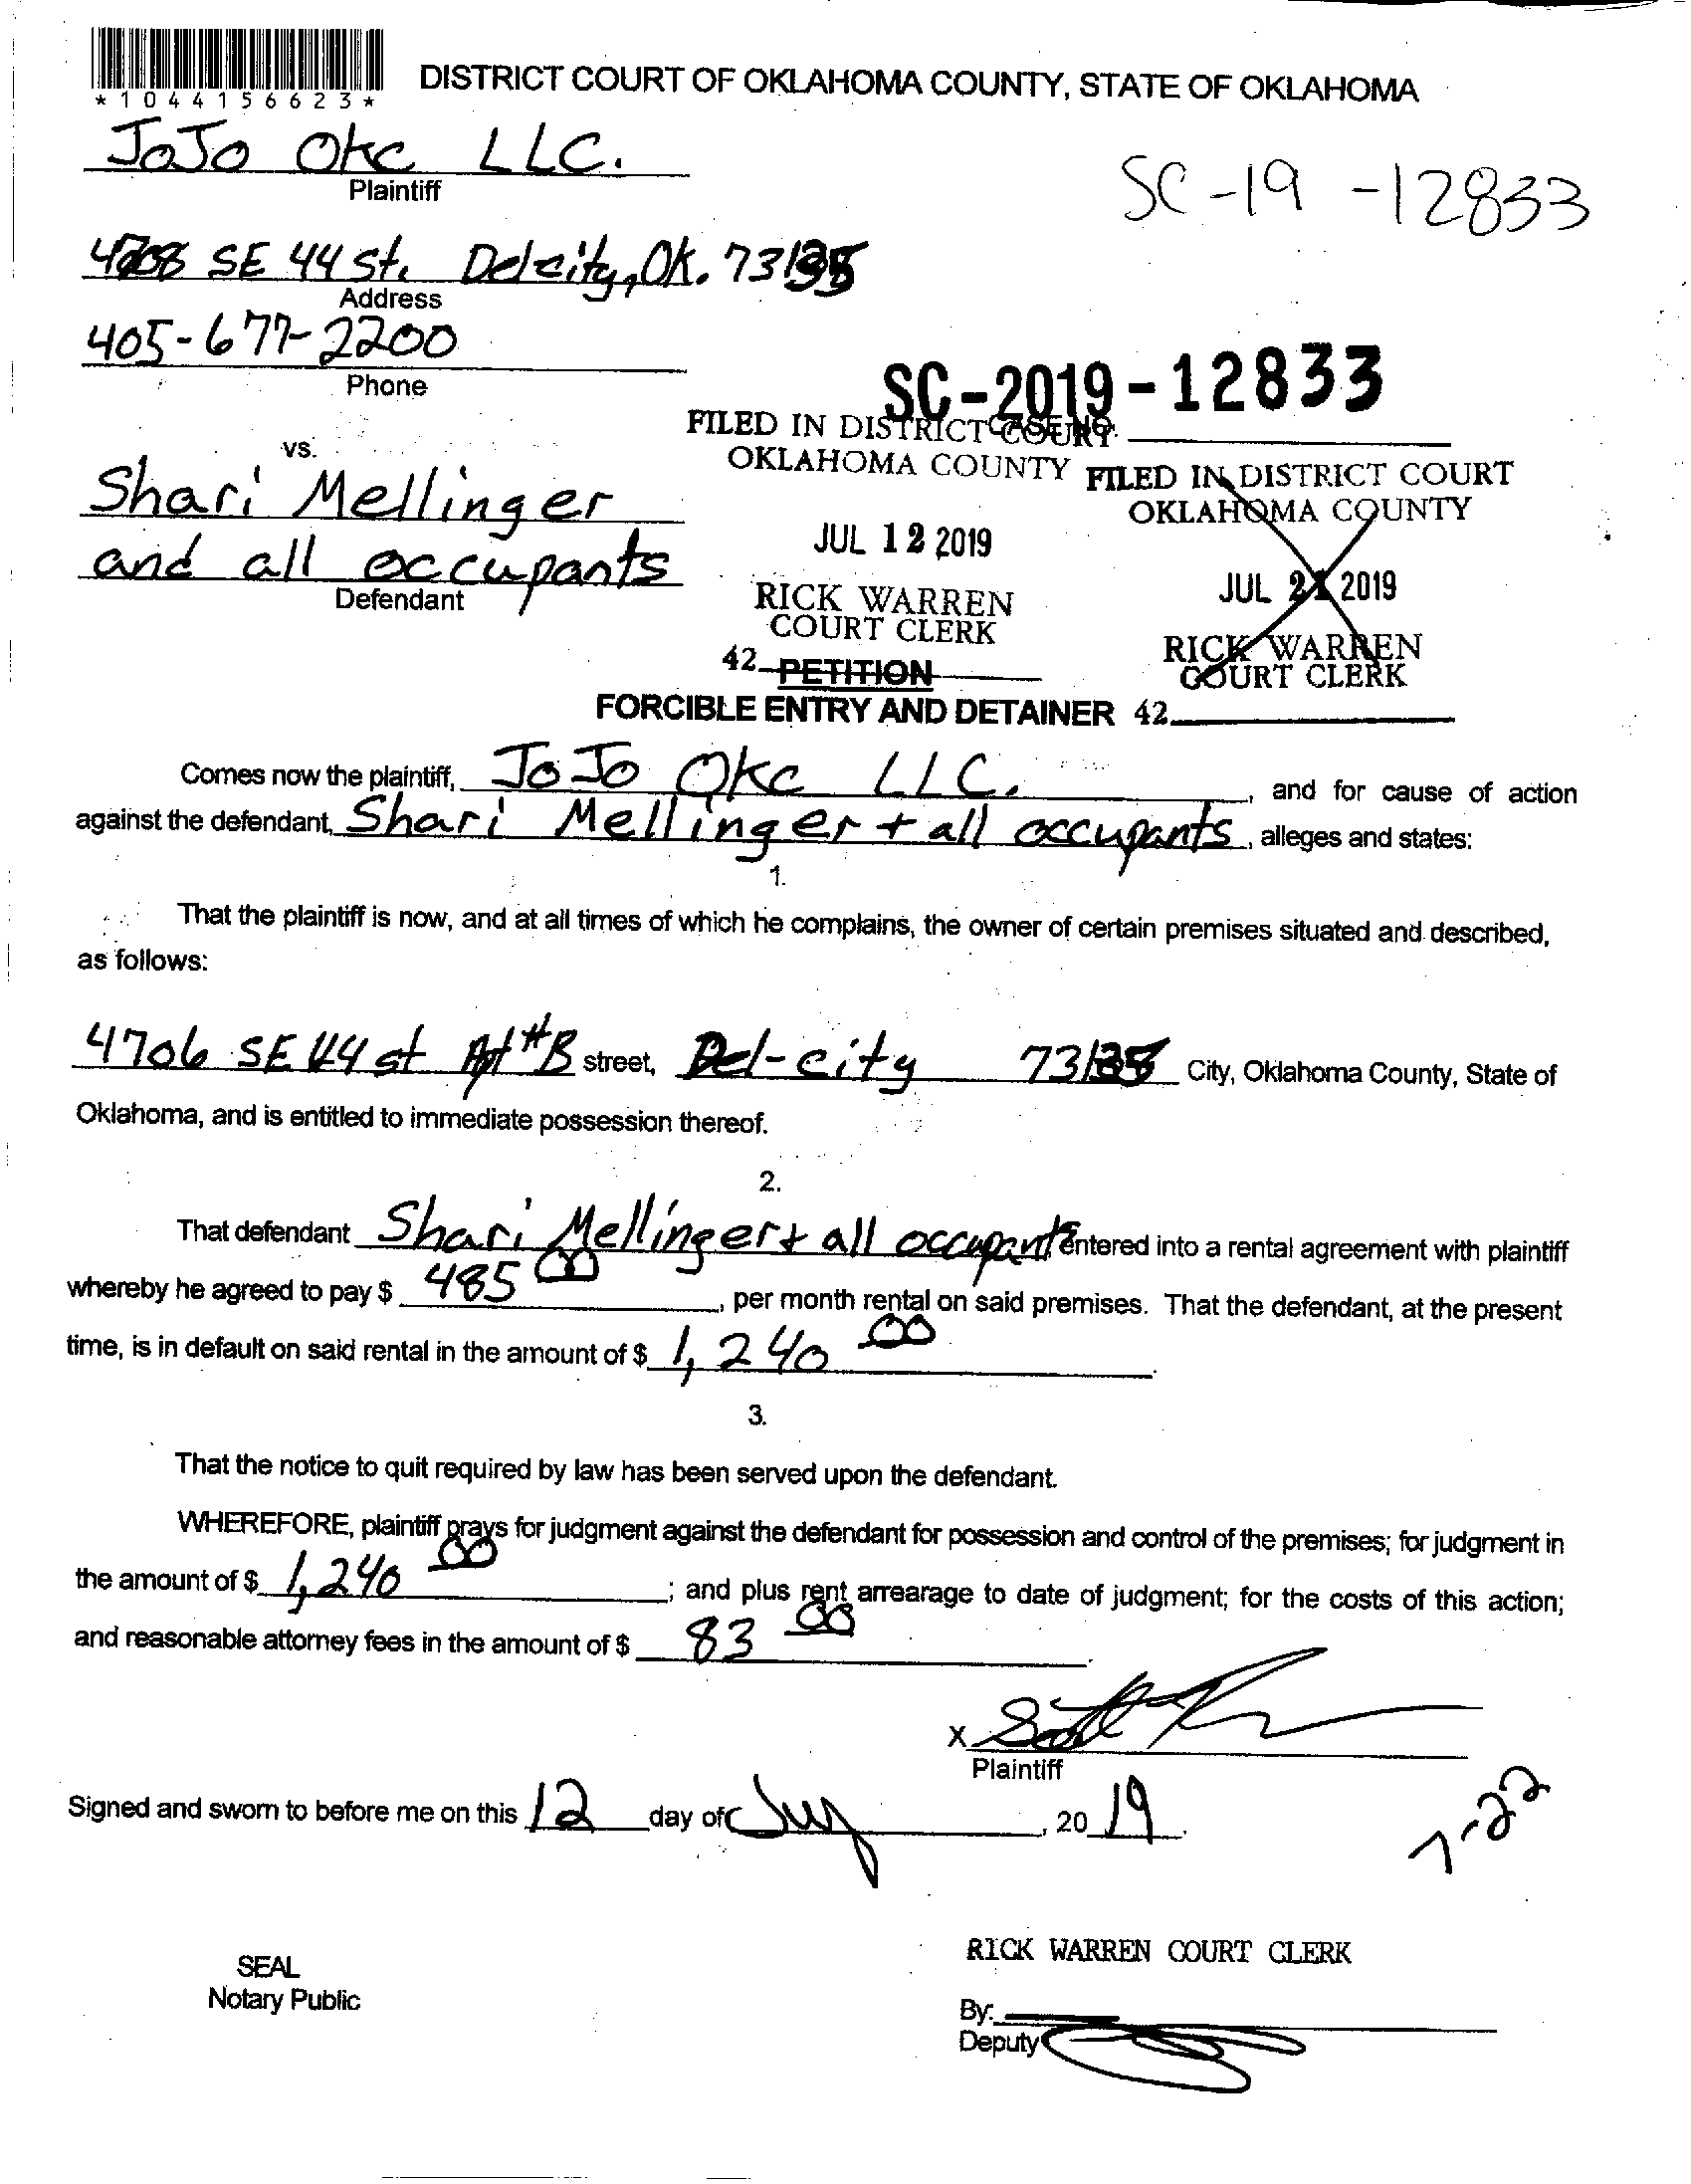 *1044156623*
DISTRICT COURT OF OKLAHOMA COUNTY, STATE OF OKLAHOMA
JoJo Okc LLC.
Plaintiff
SC-19-12833
SE 44 St. Delcity, OK.
Address
405-677-2200
Phone
SC-2019-12833
CASE NO.
FILED IN DISTRICT COURT
OKLAHOMA COUNTY
JUL 12 2019
RICK WARREN
COURT CLERK
42
FILED IN DISTRICT COURT
OKLAHOMA COUNTY
JUL 2019
RICK WARREN
COURT CLERK
42
vs.
Shari Mellinger
and all occupants
Defendant
PETITION
FORCIBLE ENTRY AND DETAINER
Comes now the plaintiff, JoJo Okc LLC. , and for cause of action
against the defendant, Shari Mellinger + all occupants, alleges and states:
1.
That the plaintiff is now, and at all times of which he complains, the owner of certain premises situated and described,
as follows:
4706 SE 44 st Apt #B street, Del-city City, Oklahoma County, State of
Oklahoma, and is entitled to immediate possession thereof.
2.
That defendant Shari Mellinger + all occupants entered into a rental agreement with plaintiff
whereby he agreed to pay $ 485 00 , per month rental on said premises. That the defendant, at the present
time, is in default on said rental in the amount of $ 1,240 00 .
3.
That the notice to quit required by law has been served upon the defendant.
WHEREFORE, plaintiff prays for judgment against the defendant for possession and control of the premises; for judgment in
the amount of $ 1,240 00 ; and plus rent arrearage to date of judgment; for the costs of this action;
and reasonable attorney fees in the amount of $ 83 00 .
X
Plaintiff
Signed and sworn to before me on this 12 day of July , 20 19.
7-22
SEAL
Notary Public
RICK WARREN COURT CLERK
By:
Deputy